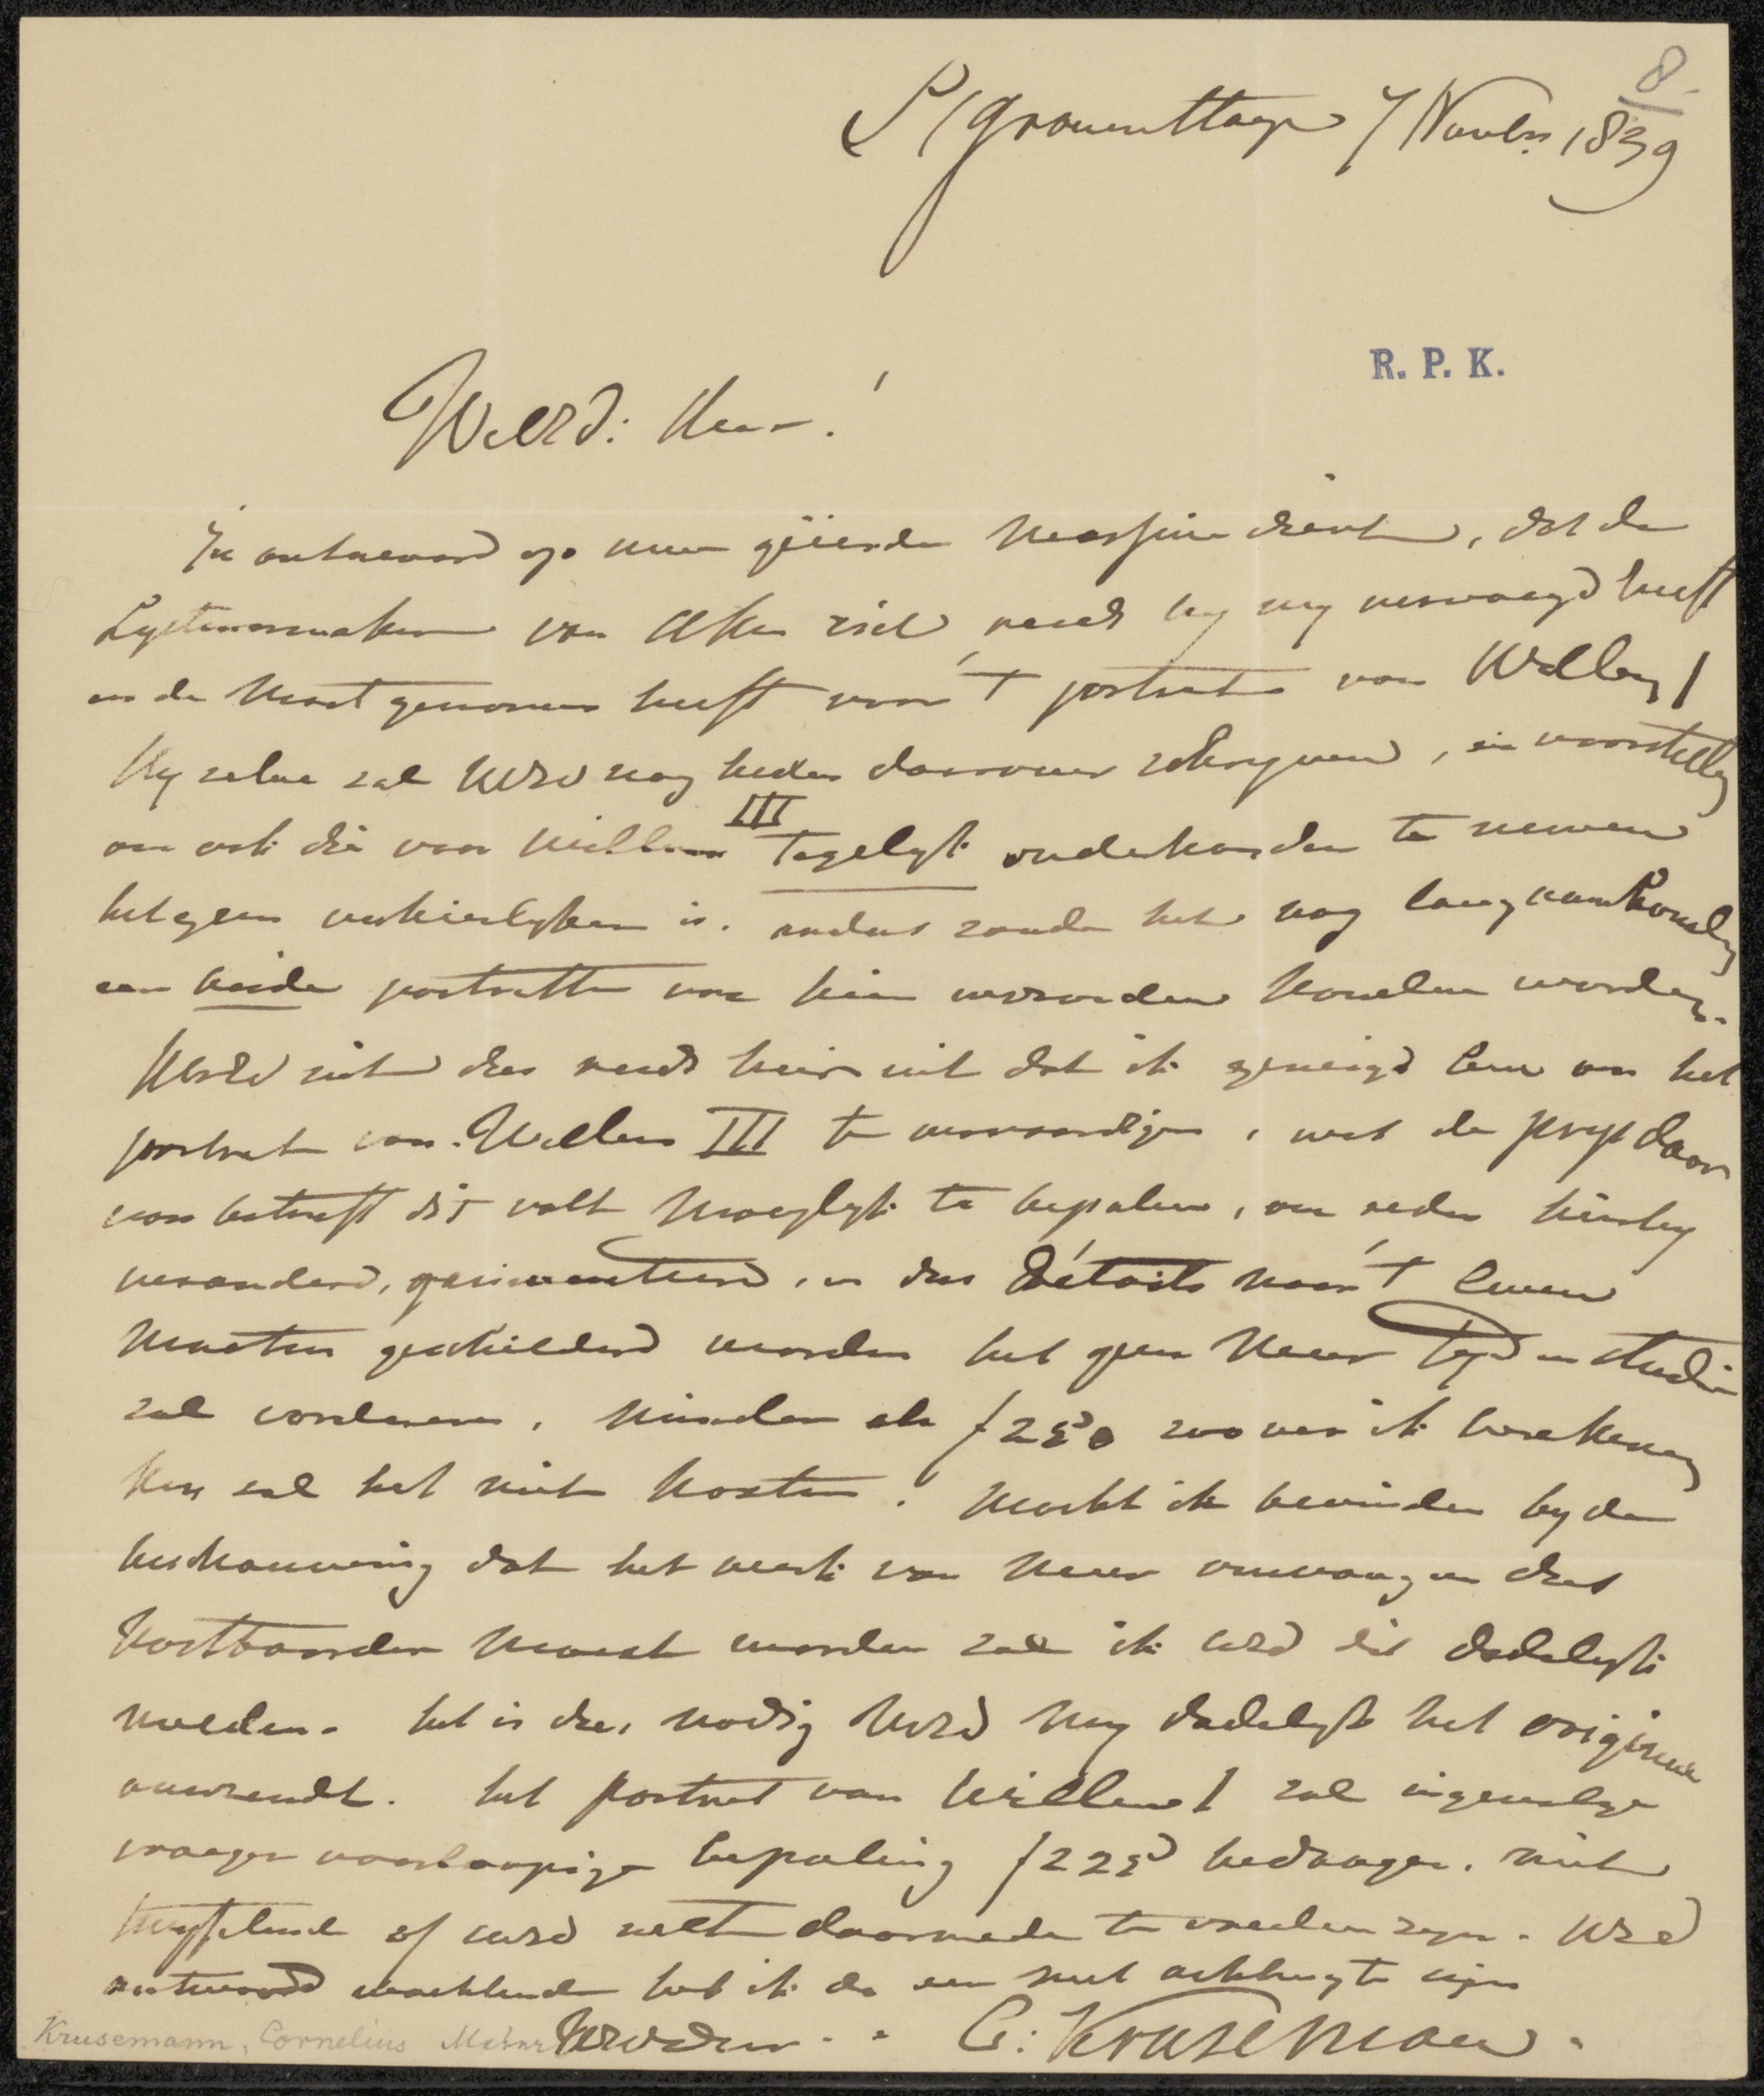 8
S/Gravenhage 7 Novbr 1839
R. P. K.
Weled: Heer!
In antwoord op uwe geëerde missive dient, dat de
Lystenmaker van Aken zich reeds by my vervoegd heeft
en de maat genomen heeft voor 't portret van Willem I
Hy zelve zal UEd nog heden daarover schryven, en voorstellen
om ook die van Willem III tegelyk onderhanden te nemen
hetgeen verkieslyker is. anders zoude het nog lang aanhouden
eer beide portretten van hier verzonden konden worden.
UEd ziet dus reeds hier uit dat ik genegen ben om het
portret van Willem III te vervaardigen, wat de prys daar
van betreft dit valt moeylyk te bepalen, om reden hierby
veranderd, geïnventeerd, en dus détails naar 't leven
moeten geschilderd worden het geen meer tyd en studie
zal vorderen, minder als f 250 zoo ver ik berekenen
kan zal het niet kosten. Mocht ik bevinden by de
beschouwing dat het werk van meer omvang en dus
kostbaarder moest worden zal ik UEd dit dadelyk
melden. het is dus nodig UEd my dadelyk het origineel
overzendt. het portret van Willem I zal ingevolge
vroeger voorloopige bepaling f 225 bedragen. niet
twyfelende of UEd zult daarmede te vreden zyn. UEd
antwoord wachtende heb ik de eer met achting te zyn
UEd Dr C: Kruseman.
Krusemann, Cornelius